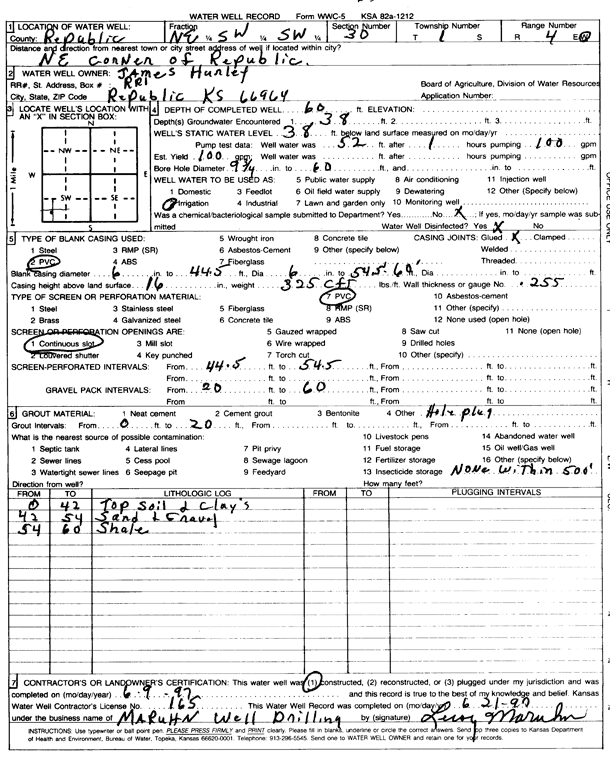 WATER WELL RECORD Form WWC-5 KSA 82a-1212
1 LOCATION OF WATER WELL: Fraction Section Number Township Number Range Number
County: Republic NE ¼ SW ¼ SW ¼ 30 T 1 S R 4 E/W
Distance and direction from nearest town or city street address of well if located within city?
NE corner of Republic.
2 WATER WELL OWNER: James Hurley
RR#, St. Address, Box # : RR1 Board of Agriculture, Division of Water Resources
City, State, ZIP Code : Republic KS 66964 Application Number:
3 LOCATE WELL'S LOCATION WITH AN "X" IN SECTION BOX: 4 DEPTH OF COMPLETED WELL 60 ft. ELEVATION:
Depth(s) Groundwater Encountered 1. 38 ft. 2. ft. 3. ft.
WELL'S STATIC WATER LEVEL 38 ft. below land surface measured on mo/day/yr
Pump test data: Well water was 52 ft. after 1 hours pumping 100 gpm
Est. Yield 100 gpm: Well water was ft. after hours pumping gpm
Bore Hole Diameter 9 3/4 in. to 60 ft., and in. to ft.
WELL WATER TO BE USED AS: 5 Public water supply 8 Air conditioning 11 Injection well
1 Domestic 3 Feedlot 6 Oil field water supply 9 Dewatering 12 Other (Specify below)
2 Irrigation 4 Industrial 7 Lawn and garden only 10 Monitoring well
Was a chemical/bacteriological sample submitted to Department? Yes No X ; If yes, mo/day/yr sample was submitted Water Well Disinfected? Yes X No
N
NW NE
W E
SW SE
S
1 Mile
5 TYPE OF BLANK CASING USED: 5 Wrought iron 8 Concrete tile CASING JOINTS: Glued X Clamped
1 Steel 3 RMP (SR) 6 Asbestos-Cement 9 Other (specify below) Welded
2 PVC 4 ABS 7 Fiberglass Threaded
Blank casing diameter 6 in. to 44.5 ft., Dia 6 in. to 54.5-60 ft., Dia in. to ft.
Casing height above land surface 16 in., weight 325 CFT lbs./ft. Wall thickness or gauge No. .255
TYPE OF SCREEN OR PERFORATION MATERIAL: 7 PVC 10 Asbestos-cement
1 Steel 3 Stainless steel 5 Fiberglass 8 RMP (SR) 11 Other (specify)
2 Brass 4 Galvanized steel 6 Concrete tile 9 ABS 12 None used (open hole)
SCREEN OR PERFORATION OPENINGS ARE: 5 Gauzed wrapped 8 Saw cut 11 None (open hole)
1 Continuous slot 3 Mill slot 6 Wire wrapped 9 Drilled holes
2 Louvered shutter 4 Key punched 7 Torch cut 10 Other (specify)
SCREEN-PERFORATED INTERVALS: From 44.5 ft. to 54.5 ft., From ft. to ft.
From ft. to ft., From ft. to ft.
GRAVEL PACK INTERVALS: From 20 ft. to 60 ft., From ft. to ft.
From ft. to ft., From ft. to ft.
6 GROUT MATERIAL: 1 Neat cement 2 Cement grout 3 Bentonite 4 Other Hole plug
Grout Intervals: From 0 ft. to 20 ft., From ft. to ft., From ft. to ft.
What is the nearest source of possible contamination: 10 Livestock pens 14 Abandoned water well
1 Septic tank 4 Lateral lines 7 Pit privy 11 Fuel storage 15 Oil well/Gas well
2 Sewer lines 5 Cess pool 8 Sewage lagoon 12 Fertilizer storage 16 Other (specify below)
3 Watertight sewer lines 6 Seepage pit 9 Feedyard 13 Insecticide storage None within 500'
Direction from well? How many feet?
FROM TO LITHOLOGIC LOG FROM TO PLUGGING INTERVALS
0 42 Top Soil & Clay's
42 54 Sand & Gravel
54 60 Shale
7 CONTRACTOR'S OR LANDOWNER'S CERTIFICATION: This water well was (1) constructed, (2) reconstructed, or (3) plugged under my jurisdiction and was
completed on (mo/day/year) 6-9-97 and this record is true to the best of my knowledge and belief. Kansas
Water Well Contractor's License No. 165 This Water Well Record was completed on (mo/day/yr) 6-21-97
under the business name of MARUHN Well Drilling by (signature) Leroy Maruhn
INSTRUCTIONS: Use typewriter or ball point pen. PLEASE PRESS FIRMLY and PRINT clearly. Please fill in blanks, underline or circle the correct answers. Send top three copies to Kansas Department
of Health and Environment, Bureau of Water, Topeka, Kansas 66620-0001. Telephone: 913-296-5545. Send one to WATER WELL OWNER and retain one for your records.
OFFICE USE ONLY